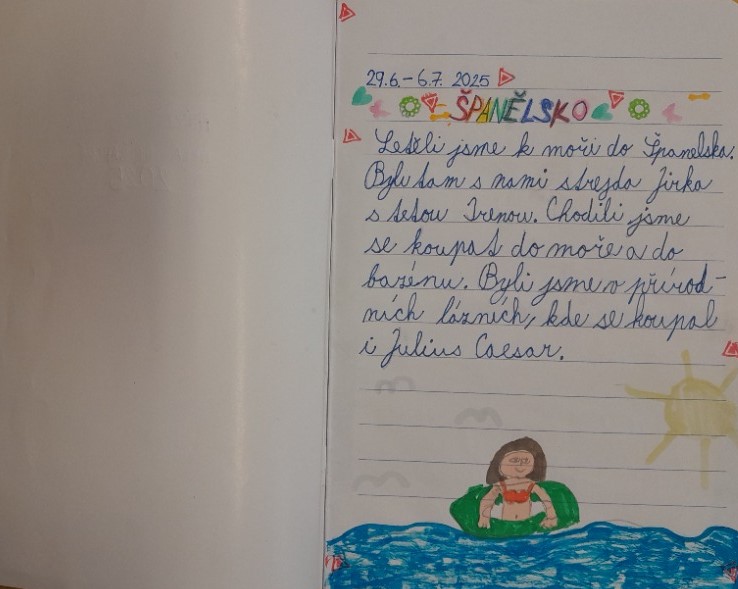 29.6.-6.7. 2025
ŠPANĚLSKO
Letěli jsme k moři do Španelska.
Byli tam s nami strejda Jirka
s tetou Irenou. Chodili jsme
se koupat do moře a do
bazénu. Byli jsme v přírod-
ních lázních, kde se koupal
i Julius Caesar.